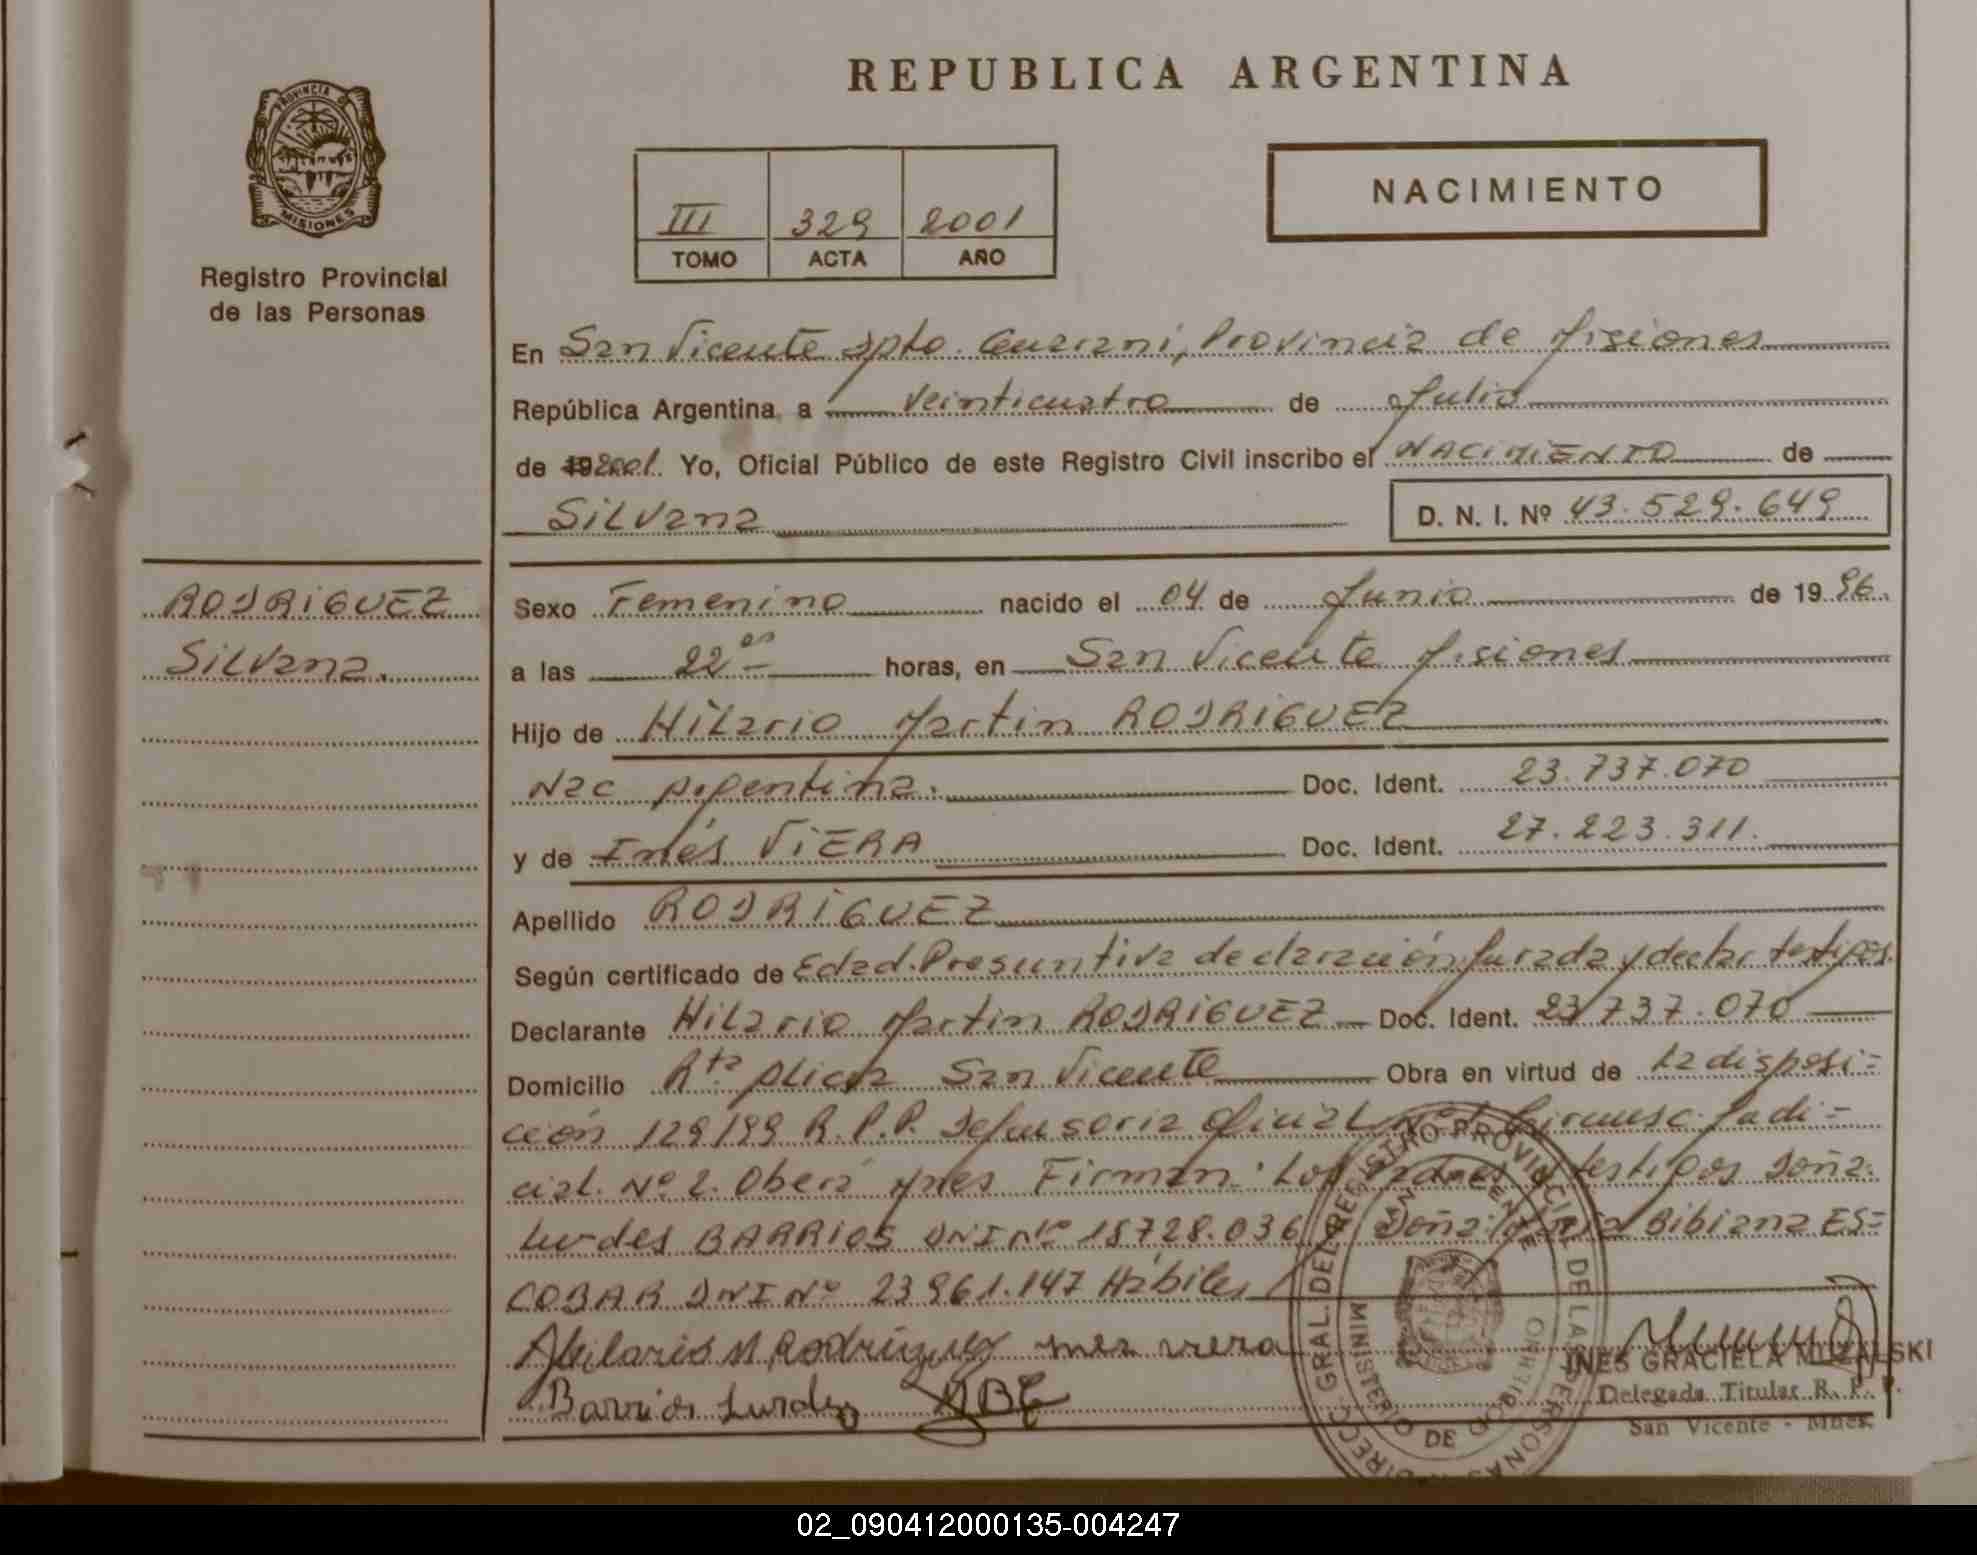 REPUBLICA ARGENTINA
PROVINCIA DE
MISIONES
Registro Provincial
de las Personas
III 329 2001
TOMO ACTA AÑO
NACIMIENTO
En San Vicente Dpto. Guarani, Provincia de Misiones
República Argentina a Veinticuatro de Julio
de 19 2001. Yo, Oficial Público de este Registro Civil inscribo el NACIMIENTO de
Silvana D. N. I. Nº 43.529.649
RODRIGUEZ
Silvana.
Sexo Femenino nacido el 04 de Junio de 19 96.
a las 22 horas, en San Vicente Misiones
Hijo de Hilario Martin RODRIGUEZ
Nac Argentina. Doc. Ident. 23.737.070
y de Inés VIERA Doc. Ident. 27.223.311.
Apellido RODRIGUEZ
Según certificado de Edad Presuntiva declaración Jurada y declar testigos
Declarante Hilario Martin RODRIGUEZ Doc. Ident. 23/737.070
Domicilio Rta Alicia San Vicente Obra en virtud de La disposi=
ción 129/99 R.P.P. Defensoria Oficial Nº 1 Circunsc. Judi=
cial. Nº 2. Oberá Mnes Firman: Los Padres y testigos Doña.
Lurdes BARRIOS DNI Nº 18728.036 y Doña Bibiana ES=
COBAR DNI Nº 23961.147 Hábiles
Hilario M Rodriguez ines viera
Barrios Lurdes ABE
DIRECC. GRAL. DEL REGISTRO PROVINCIAL DE LAS PERSONAS
SAN VICENTE
MINISTERIO DE GOBIERNO
INES GRACIELA MUZALSKI
Delegada Titular R. P. P.
San Vicente - Mnes.
02_090412000135-004247